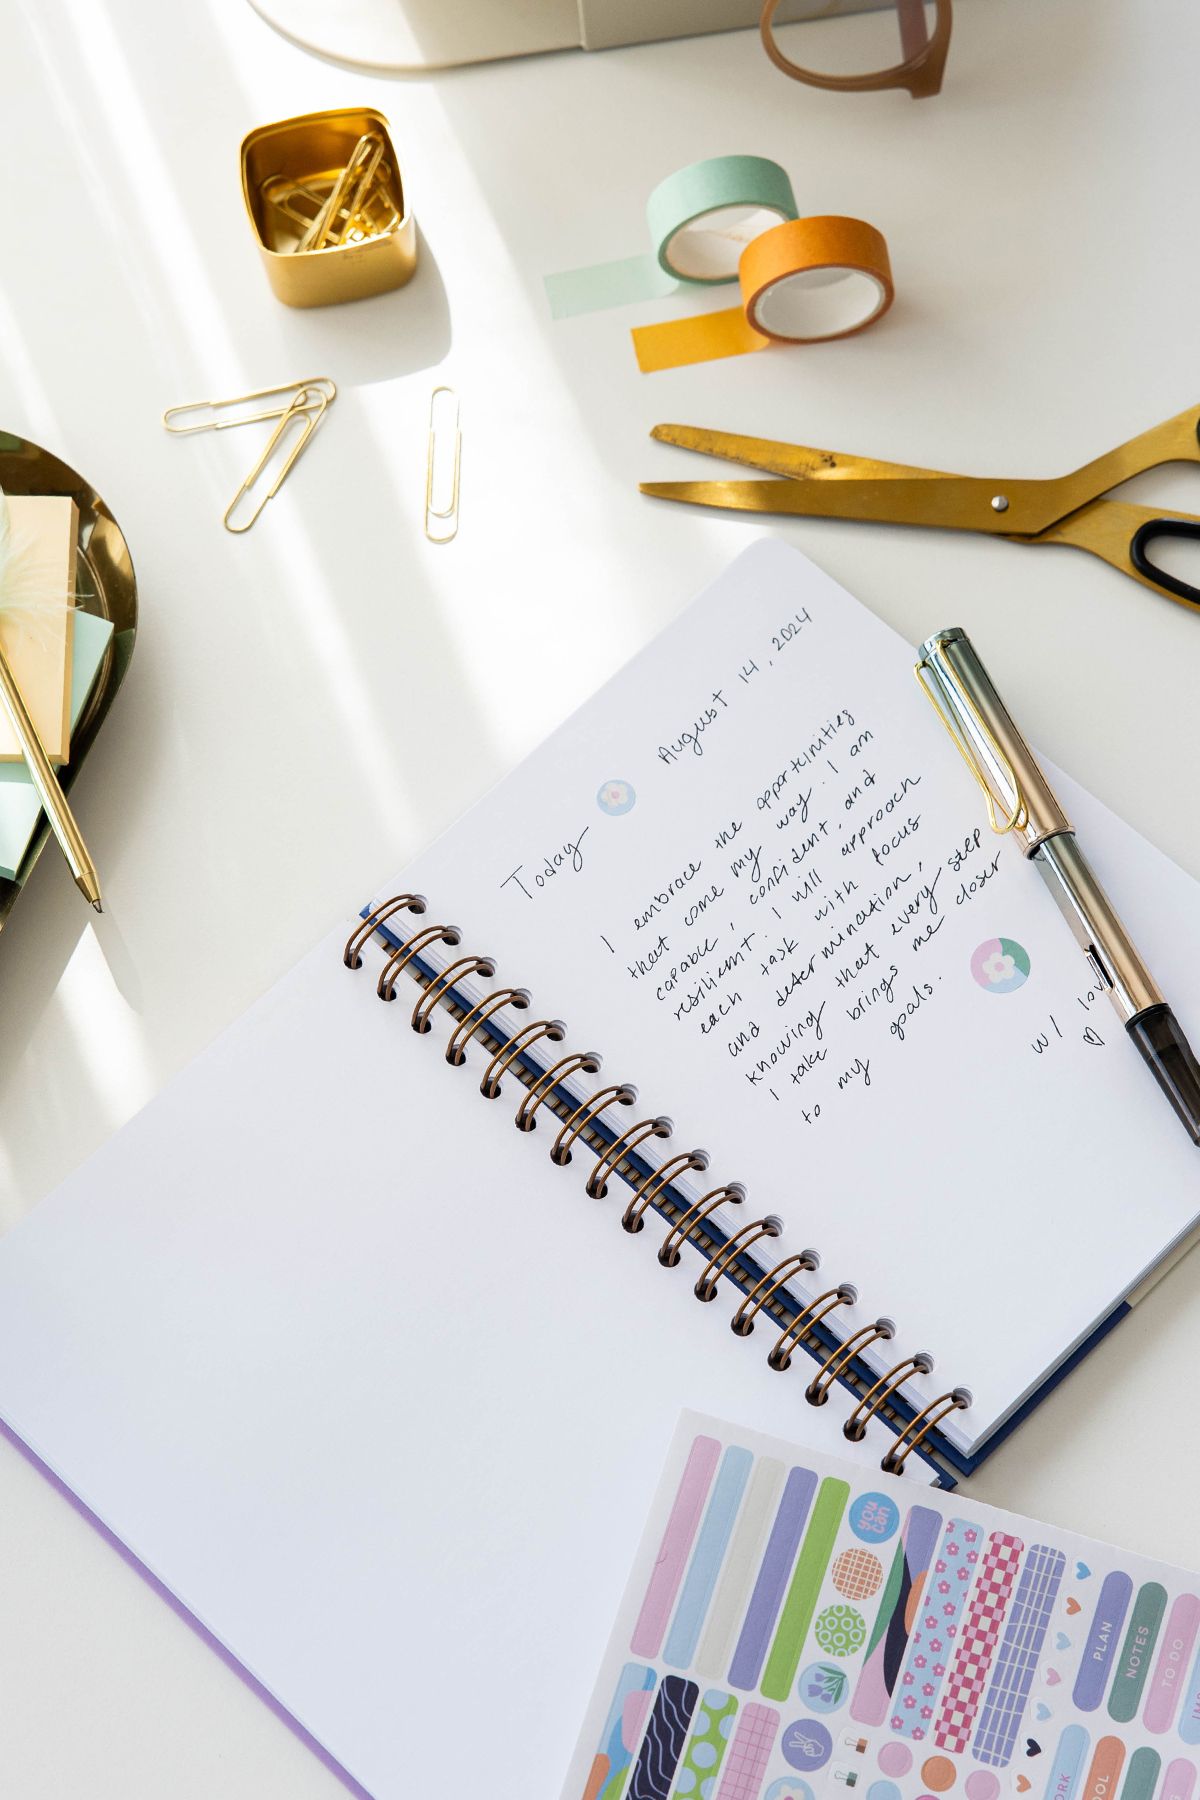 August 14, 2024
Today
I embrace the opportunities
that come my way. I am
capable, confident, and
resilient. I will approach
each task with focus
and determination,
knowing that every step
I take brings me closer
to my goals.
w/
you
can
PLAN
NOTES
TO DO